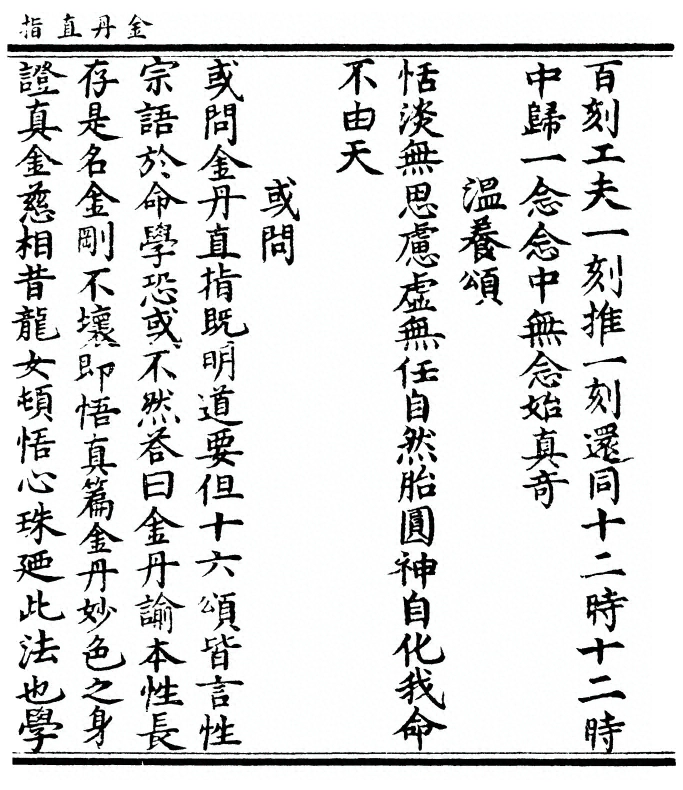 金丹直指
百刻工夫一刻推一刻還同十二時十二時
中歸一念念中無念始真奇
溫養頌
恬淡無思慮虛無任自然胎圓神自化我命
不由天
或問
或問金丹直指旣明道要但十六頌皆言性
宗語於命學恐或不然荅曰金丹諭本性長
存是名金剛不壞即悟真篇金丹妙色之身
證真金慈相昔龍女頓悟心珠廼此法也學